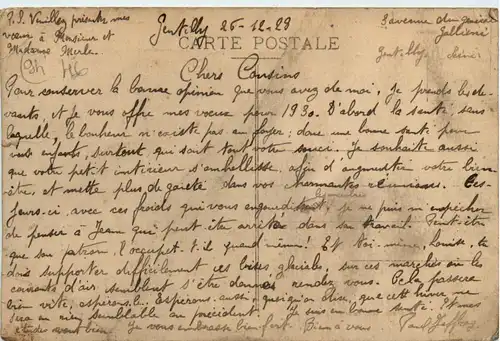 P.S. Veuillez présenter mes
vœux à Monsieur et
Madame Merle
Gentilly 26-12-29
5 avenue du général
Gallieni
Gentilly Seine
CARTE POSTALE
Chers Cousins
Pour conserver la bonne opinion que vous avez de moi, je prends les de-
vants, et je vous offre mes vœux pour 1930. D'abord la santé sans
laquelle, le bonheur n'existe pas au foyer; donc une bonne santé pour
vos enfants, surtout qui sont tout votre souci. Je souhaite aussi
que votre petit intérieur s'embellisse, afin d'augmenter votre bien-
être, et mette plus de gaieté dans vos charmantes réunions. Ces-
jours-ci, avec ces froids qui vous engourdissent, je ne puis m'empêcher
de penser à Jean qui peut être arrêté dans son travail. Peut-être
que son patron l'occupe t-il quand même! Et toi-même, Louise, tu
dois supporter difficilement ces bises glaciales, sur ces marchés où les
courants d'air semblent s'être donnés rendez vous. Cela passera
bien vite, espérons-le. Espérons, aussi, quoiqu'on dise, que cet hiver ne
sera en rien semblable au précédent. Je suis en bonne santé. Et mes
études vont bien. Je vous embrasse bien fort. Bien à vous Paul